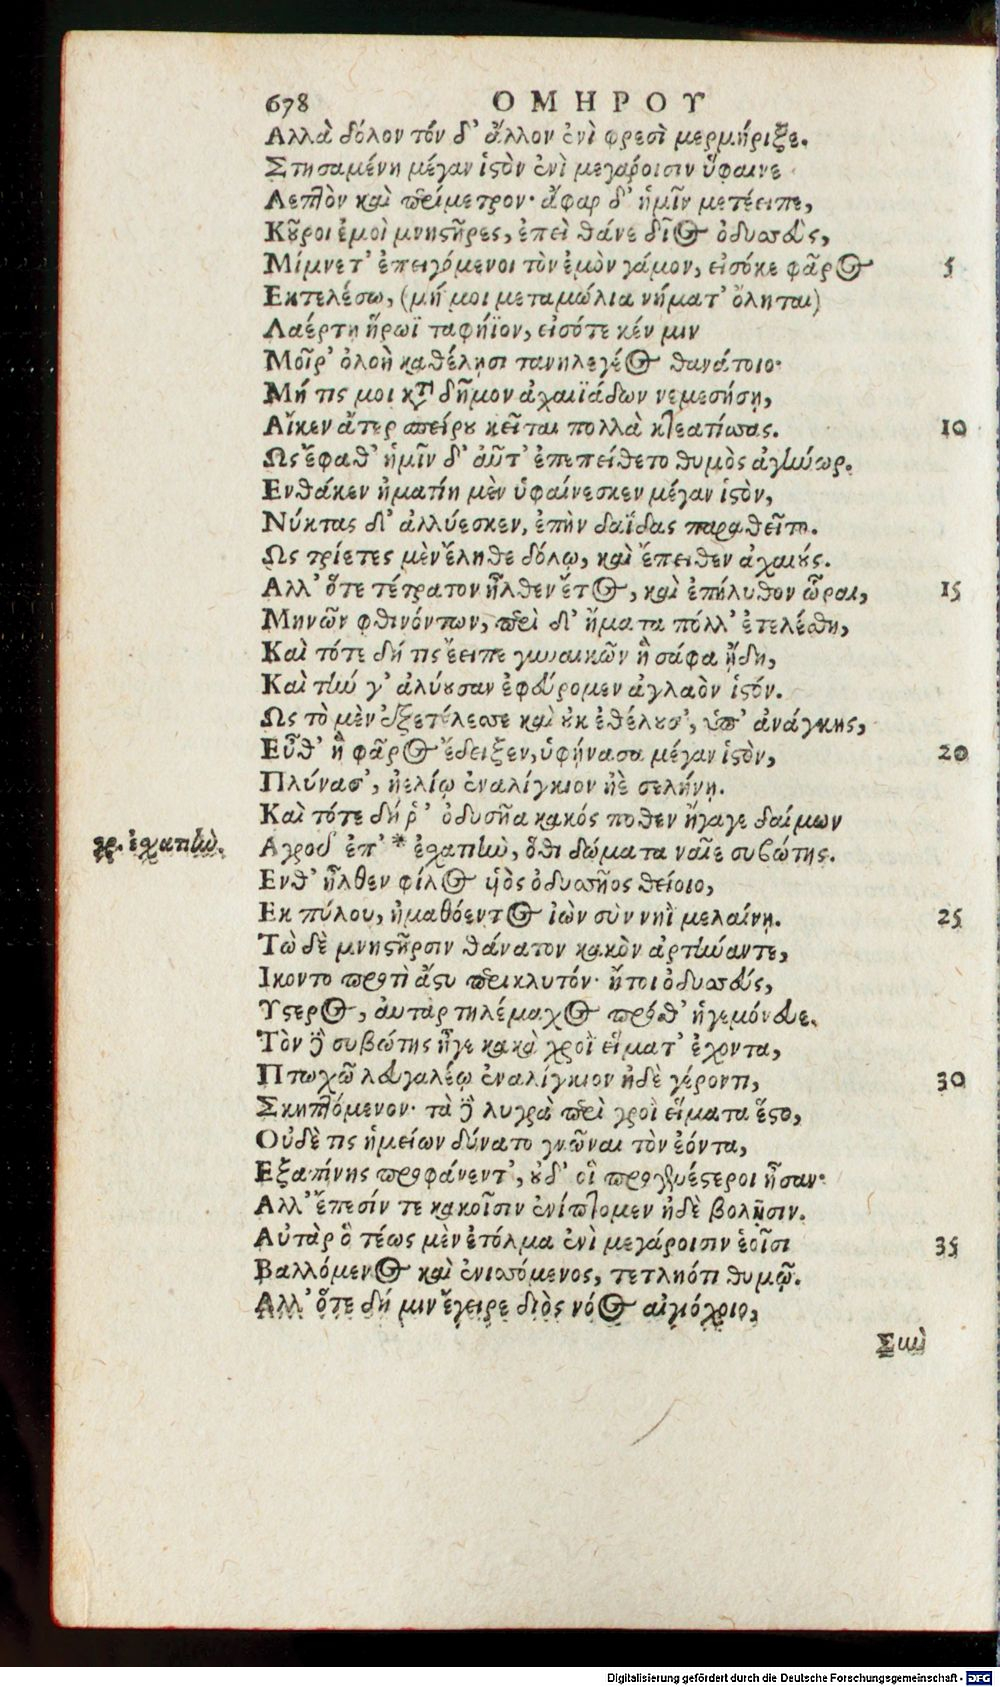 678 ΟΜΗΡΟΥ
Αλλὰ δόλον τόν δ' ἄλλον ἐνὶ φρεσὶ μερμήριξε.
Στησαμένη μέγαν ἱστὸν ἐνὶ μεγάροισιν ὕφαινε
Λεπτὸν καὶ περίμετρον· ἄφαρ δ' ἡμῖν μετέειπε,
Κοῦροι ἐμοὶ μνηστῆρες, ἐπεὶ θάνε δῖος ὀδυσσεύς,
Μίμνετ' ἐπειγόμενοι τὸν ἐμὸν γάμον, εἰσόκε φᾶρος 5
Εκτελέσω, (μή μοι μεταμώλια νήματ' ὄληται)
Λαέρτῃ ἥρωϊ ταφήϊον, εἰσότε κέν μιν
Μοῖρ' ὀλοὴ καθέλῃσι τανηλεγέος θανάτοιο·
Μή τίς μοι κατὰ δῆμον ἀχαιϊάδων νεμεσήσῃ,
Αἴκεν ἄτερ σπείρου κεῖται πολλὰ κτεατίσσας. 10
Ως ἔφαθ' ἡμῖν δ' αὖτ' ἐπεπείθετο θυμὸς ἀγήνωρ.
Ενθάκεν ἠματίη μὲν ὑφαίνεσκεν μέγαν ἱστὸν,
Νύκτας δ' ἀλλύεσκεν, ἐπὴν δαΐδας παραθεῖτο.
Ως τρίετες μὲν ἔληθε δόλῳ, καὶ ἔπειθεν ἀχαιούς.
Αλλ' ὅτε τέτρατον ἦλθεν ἔτος, καὶ ἐπήλυθον ὧραι, 15
Μηνῶν φθινόντων, περὶ δ' ἤματα πόλλ' ἐτελέσθη,
Καὶ τότε δή τις ἔειπε γυναικῶν ἣ σάφα ᾔδη,
Καὶ τήν γ' ἀλύουσαν ἐφεύρομεν ἀγλαὸν ἱστόν.
Ως τὸ μὲν ἐξετέλεσσε καὶ οὐκ ἐθέλουσ', ὑπ' ἀνάγκης,
Εὖθ' ἣ φᾶρος ἔδειξεν, ὑφήνασα μέγαν ἱστὸν, 20
Πλύνασ', ἠελίῳ ἐναλίγκιον ἠὲ σελήνῃ.
Καὶ τότε δή ῥ' ὀδυσῆα κακός ποθεν ἤγαγε δαίμων
γρ. ἐσχατιὴν. Αγροῦ ἐπ' * ἐσχατιὴν, ὅθι δώματα ναῖε συβώτης.
Ενθ' ἦλθεν φίλος υἱὸς ὀδυσσῆος θείοιο,
Εκ πύλου, ἠμαθόεντος ἰὼν σὺν νηῒ μελαίνῃ. 25
Τὼ δὲ μνηστῆρσιν θάνατον κακὸν ἀρτύναντε,
Ικοντο προτὶ ἄστυ περικλυτόν· ἤτοι ὀδυσσεύς,
Υστερος, αὐτὰρ τηλέμαχος πρόσθ' ἡγεμόνευε.
Τὸν δὲ συβώτης ἦγε κακὰ χροῒ εἵματ' ἔχοντα,
Πτωχῷ λευγαλέῳ ἐναλίγκιον ἠδὲ γέροντι, 30
Σκηπτόμενον· τὰ δὲ λυγρὰ περὶ χροῒ εἵματα ἕστο,
Οὐδέ τις ἡμείων δύνατο γνῶναι τὸν ἐόντα,
Εξαπίνης προφάνεντ', οὐδ' οἳ προγενέστεροι ἦσαν·
Αλλ' ἔπεσίν τε κακοῖσιν ἐνίπτομεν ἠδὲ βολῇσιν.
Αὐτὰρ ὃ τέως μὲν ἐτόλμα ἐνὶ μεγάροισιν ἑοῖσι 35
Βαλλόμενος καὶ ἐνισσόμενος, τετληότι θυμῷ.
Αλλ' ὅτε δή μιν ἔγειρε διὸς νόος αἰγιόχοιο,
Σὺν
Digitalisierung gefördert durch die Deutsche Forschungsgemeinschaft - DFG